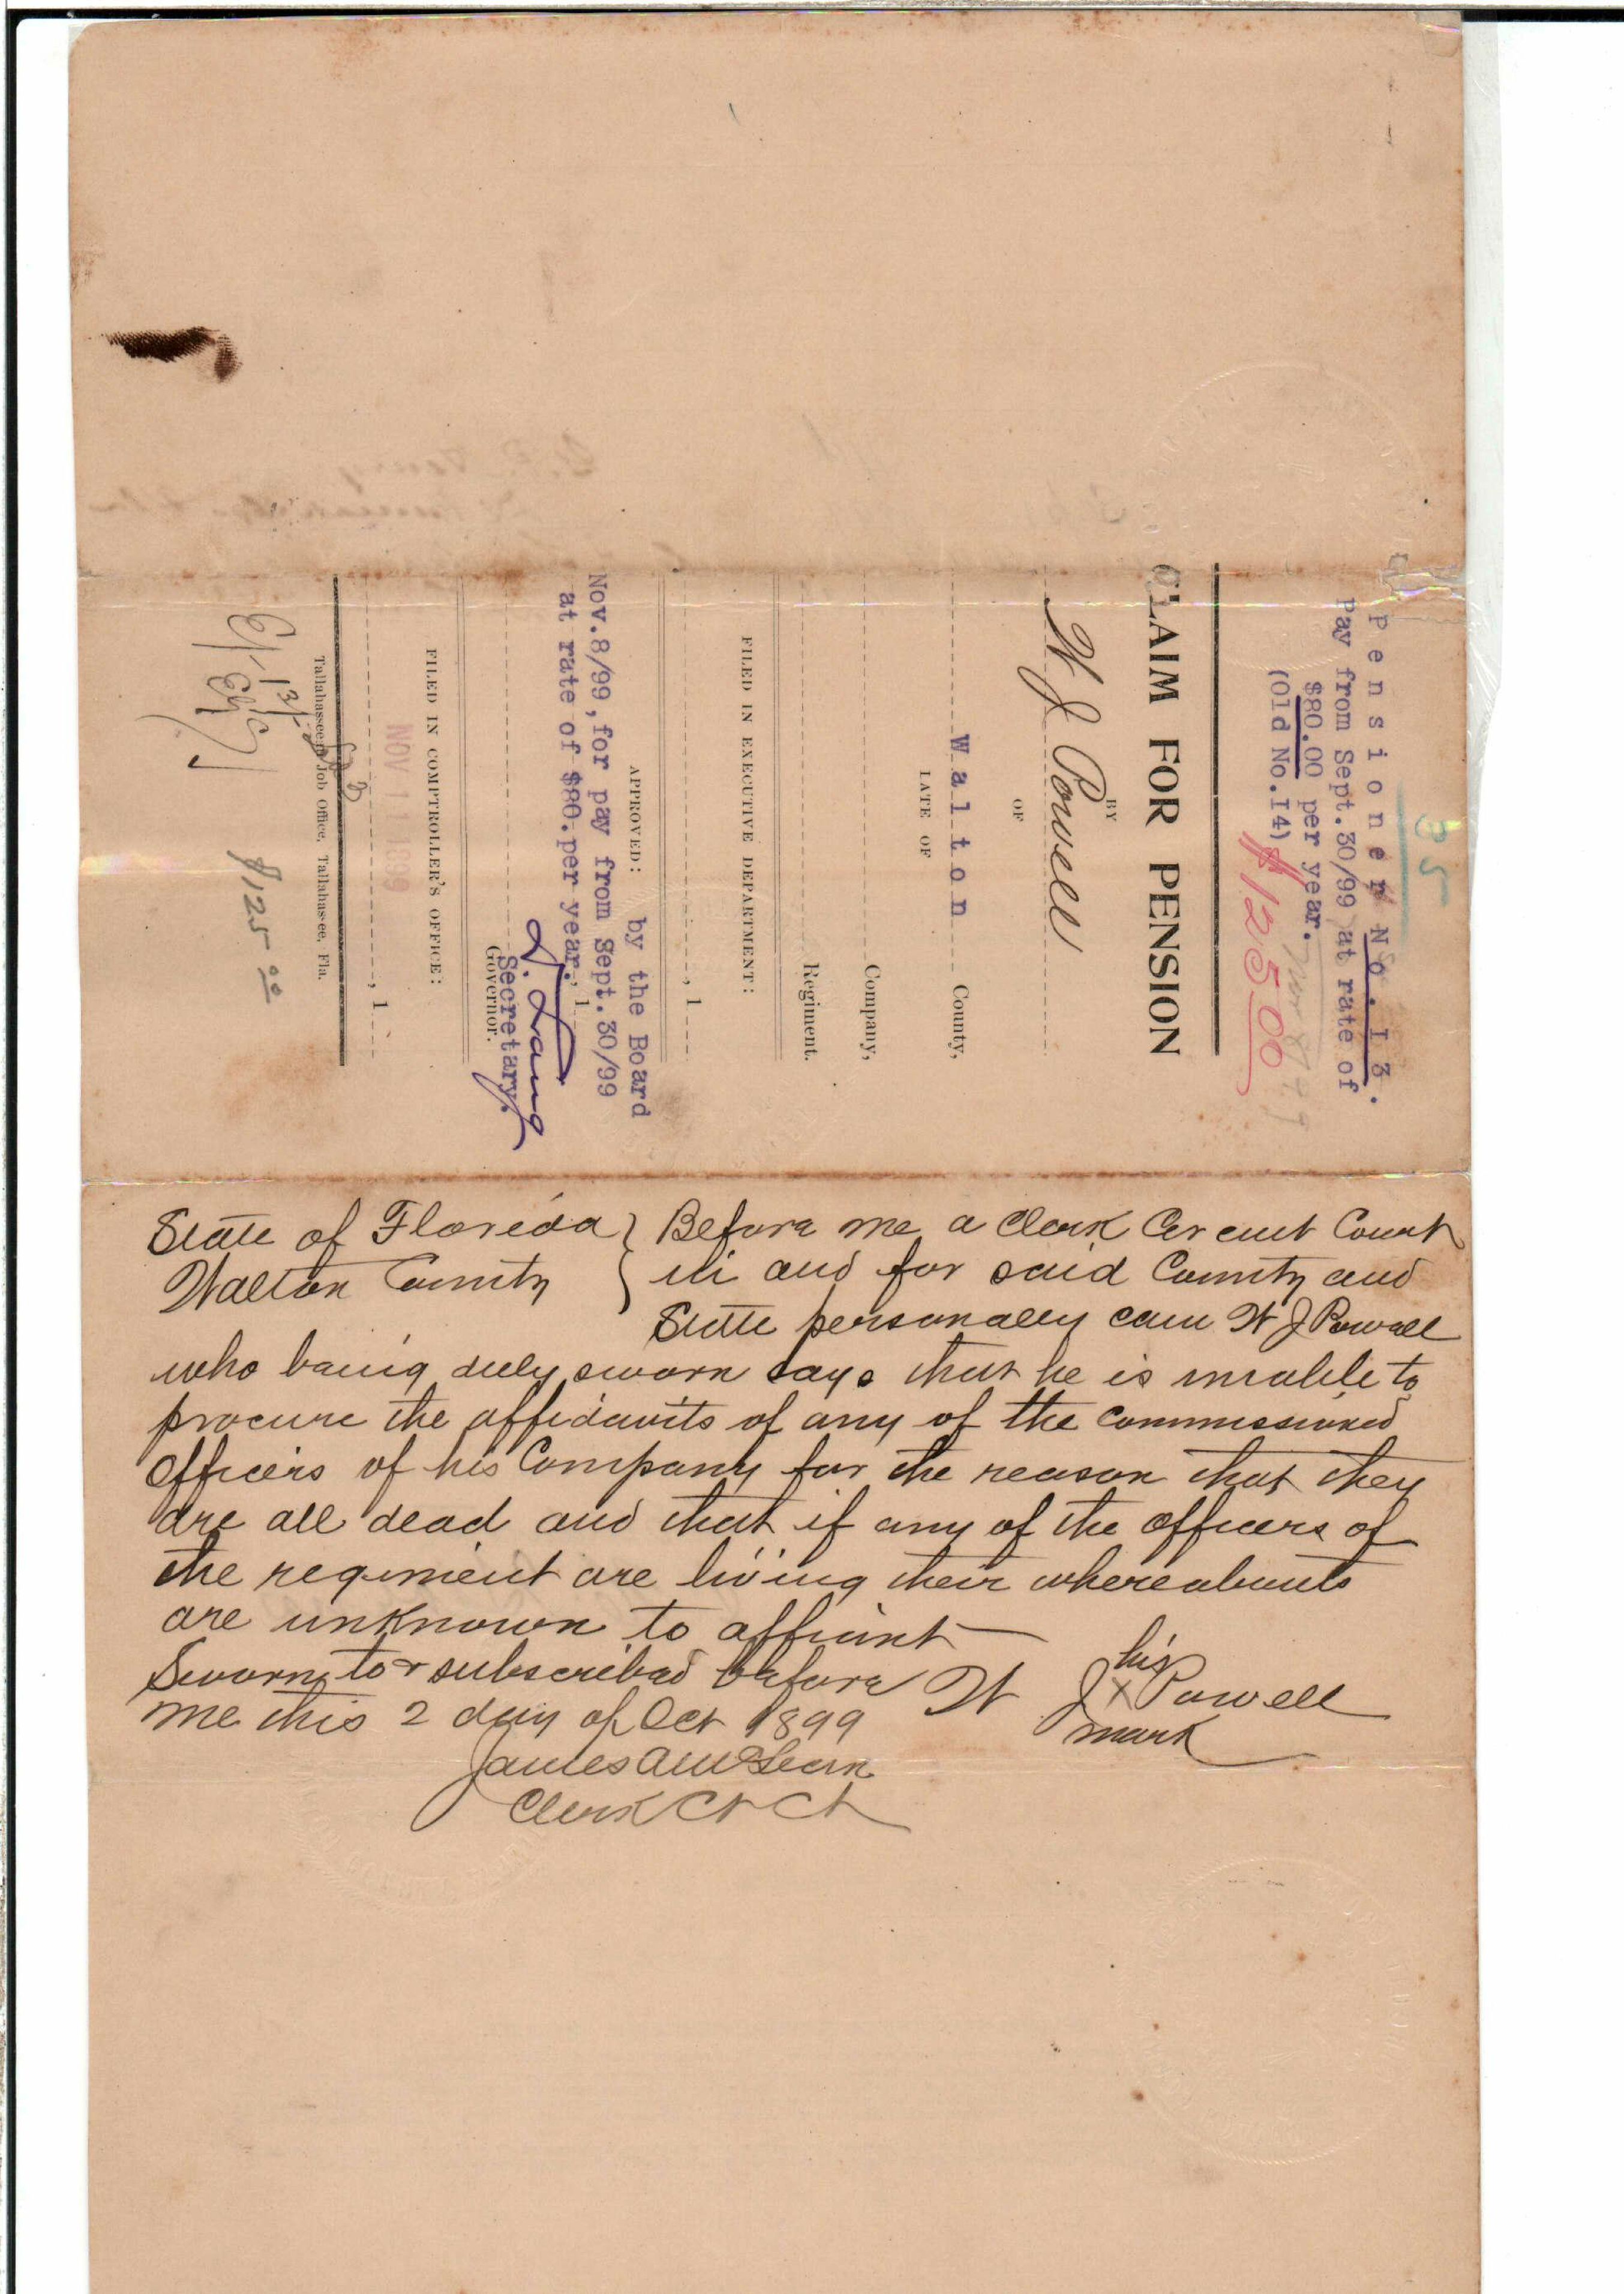 35
Pensioner No. I3.
Pay from Sept.30/99 at rate of
$80.00 per year.
(Old No.I4) $125 00
CLAIM FOR PENSION
BY
W J Powell
OF
Walton County,
LATE OF
Company,
Regiment.
FILED IN EXECUTIVE DEPARTMENT:
, 1
APPROVED: by the Board
Nov.8/99, for pay from Sept.30/99
at rate of $80.per year. , 1
L. Lang
Secretary.
Governor.
FILED IN COMPTROLLER'S OFFICE:
NOV 11 1899
, 1
Tallahasseean Job Office, Tallahassee, Fla.
$125 00
State of Florida } Before me a Clerk Circuit Court
Walton County } in and for said County and
State personally came W J Powell
who being duly sworn says that he is unable to
procure the affidavits of any of the commissioned
officers of his Company for the reason that they
are all dead and that if any of the officers of
the regiment are living their whereabouts
are unknown to affiant
Sworn to & subscribed before W J his x mark Powell
me this 2 day of Oct 1899
James A McLean
Clerk Ct Ct